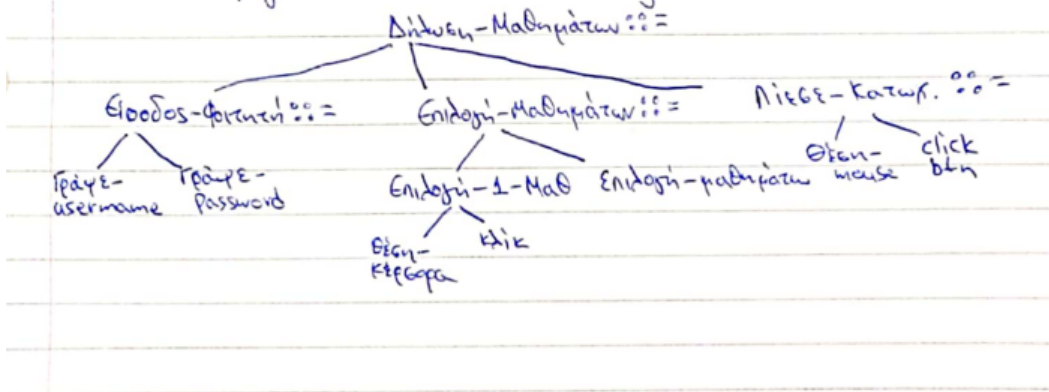 Δήλωση-Μαθημάτων ::=
Είσοδος-Φοιτητή ::= Επιλογή-Μαθημάτων ::= Πίεσε-Καταχ. ::=
Γράψε-username Γράψε-Password Επιλογή-1-Μαθ Επιλογή-μαθημάτων Θέση-mouse click btn
Θέση-κέρσορα κλίκ